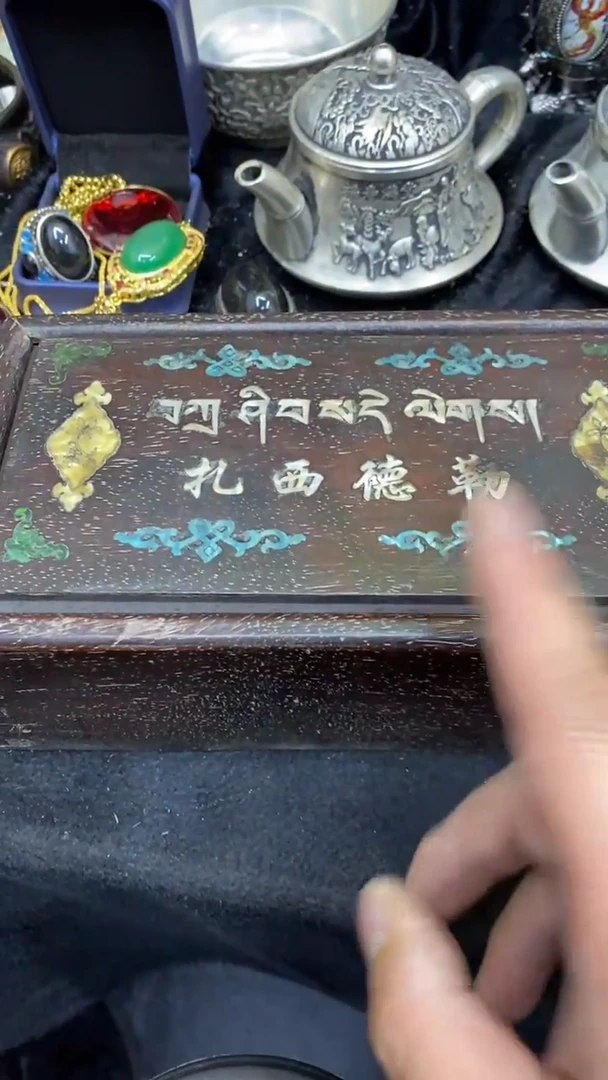 བཀྲ ཤིབསདེ ལེགས།
扎西德勒